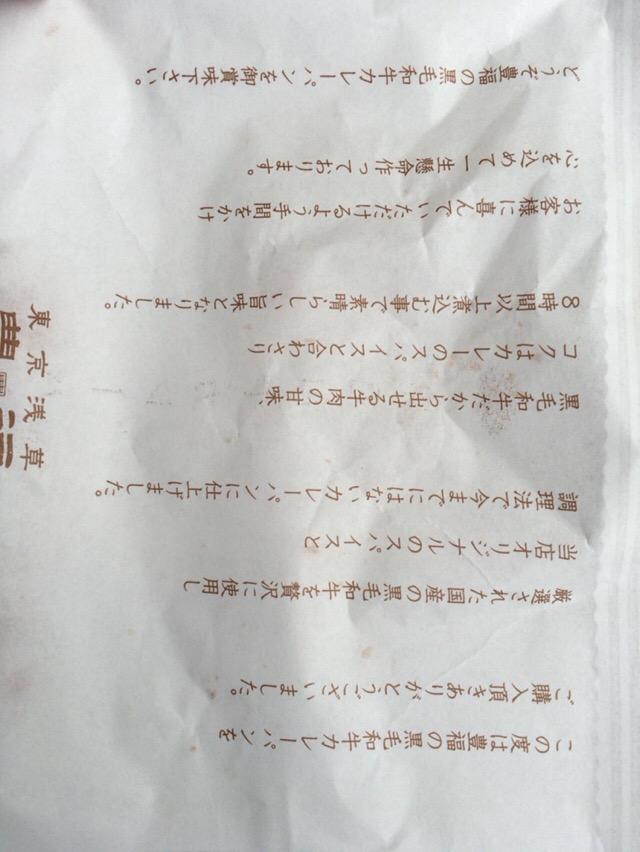 この度は豊福の黒毛和牛カレーパンを
ご購入頂きありがとうございました。
厳選された国産の黒毛和牛を贅沢に使用し
当店オリジナルのスパイスと
調理法で今までにはないカレーパンに仕上げました。
黒毛和牛だから出せる牛肉の甘味、
コクはカレーのスパイスと合わさり
8時間以上煮込む事で素晴らしい旨味となりました。
お客様に喜んでいただけるよう手間をかけ
心を込めて一生懸命作っております。
どうぞ豊福の黒毛和牛カレーパンを御賞味下さい。
東京浅草